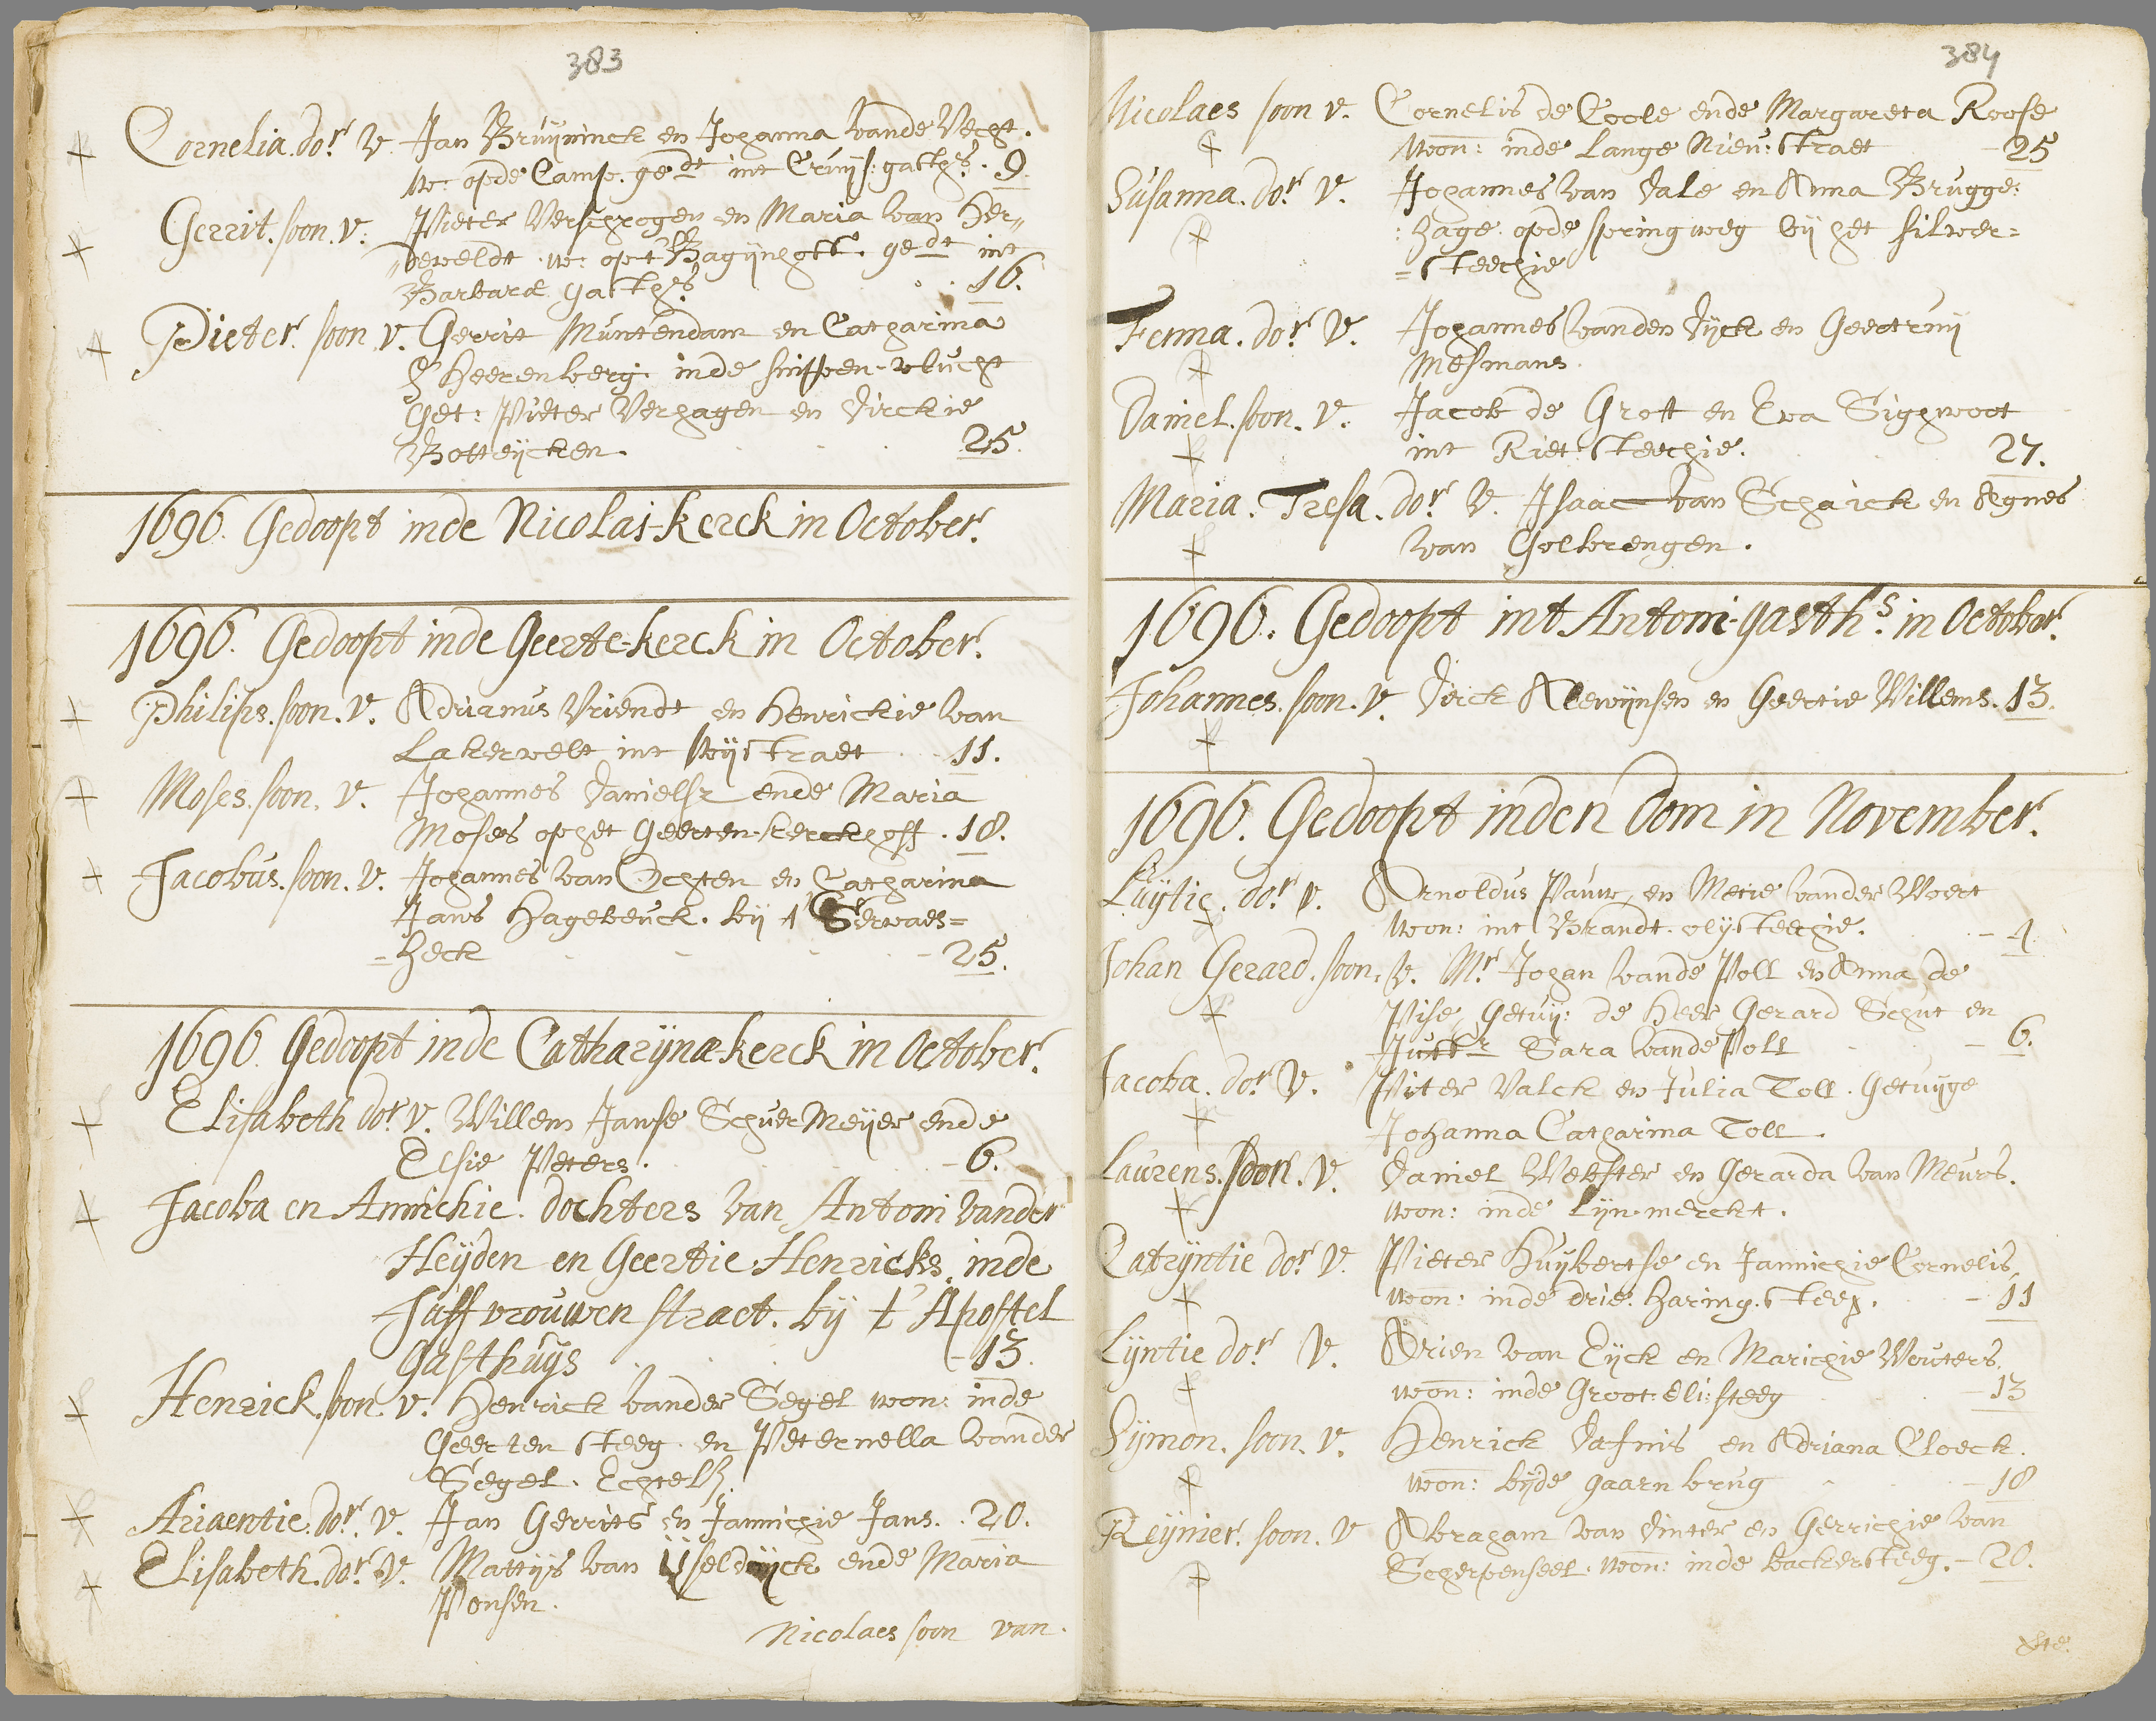 383
Cornelia. dor. V. Jan Bruijninck en Johanna vande Vecht.
w: opde Camp. gedt int Cruijs: gasths. 9.
Gerrit. soon. v: Pieter Verschrogen en Maria van Her„
„deweldt. w: op t Bagijnhoff. gedt int
Barbaræ gasths. 16.
Pieter. soon v. Gerrit Muntendam en Catharina
S Heerenberg. inde suijpen-vlucht
Get: Pieter Verhagen en Dirckie
Botteijcken. 25.
1696. Gedoopt inde Nicolai-kerck in October.
1696. Gedoopt inde Geerte-kerck in October.
Philips. soon. v. Adrianus Vriendt en Henrickie van
Lakervelt int Wijstraet 11.
Moses. soon. v. Johannes Danielsz ende Maria
Moses op het Geerten-kerckhoff. 18.
Jacobus. soon. v. Johannes van Ochten en Catharina
Jans Hagebeuck. bij t Servaes=
=heck 25.
1696. Gedoopt inde Catharijnæ-kerck in October.
Elisabeth dor. v. Willem Janse Schuer Meijer ende
Elsie Peters. 6.
Jacoba en Annichie. dochters van Antoni vander
Heijden en Geertie Henricks. inde
Juffvrouwen straet. bij t' Apostel
Gasthuijs 13.
Henrick. soon. v. Henrick vander Segel won: inde
Geerten steeg. en Peternella vander
Segel. Echtel.
Ariaentie. dor. v. Jan Gerrits en Jannichie Jans. 20.
Elisabeth. dor. v. Mattijs van Ijseldijck ende Maria
Ponsen.
Nicolaes soon van.
384
Nicolaes soon v. Cornelis de Coole ende Margareta Roose
won: inde Lange Nieu: straet 25
Susanna. dor. v. Johannes van Dale en Anna Brugge:
:hage. opde springweg bij het silver=
=steechie
Fenna. dor. v. Johannes vanden Dijck en Geertruij
Mesmans.
Daniel. soon. v. Jacob de Grott en Eva Sighwoot
int Riet steechie. 27.
Maria. Tresa. dor. v. Isaac van Schaick en Agnes
van Golbrengen.
1696. Gedoopt int Antoni-gasths. in October.
Johannes. soon. v. Dirck Alewijnsen en Geertie Willems. 13.
1696. Gedoopt inden Dom in November.
Luijtie. dor. v. Arnoldus Pauw, en Metie vander Woert
won: int Brandt. olij steegie. 4
Johan Gerard. soon. v. Mr. Johan vande Poll en Anna de
Wise Getuij: de Heer Gerard Schut en
Juffr. Sara vande Poll 6.
Jacoba. dor. v. Piter Valck en Julia Toll. Getuijge
Johanna Catharina Toll.
Laurens. soon. v. Daniel Webster en Gerarda van Meurs.
won: inde Lijn-merckt.
Catrijntie dor. v. Pieter Huijbertse en Jannichie Cornelis,
won: inde drie. haring. steeg. 11
Lijntie dor. v. Arien van Eijck en Marichie Wouters,
won: inde Groot: Eli: steeg 13
Sijmon. soon. v. Henrick Dafnis en Adriana Cloeck.
won: bijde gaarn brug 18
Reijnier. soon. v Abraham van Dinter en Gerrichie van
Scherpenseel. won: inde backersteeg. 20.